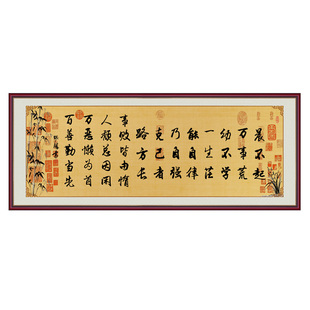 晨不起
万事荒
幼不学
一生茫
能自律
乃自强
克己者
路方长
事败皆由惰
人颓总因闲
万恶懒为首
万善勤当先